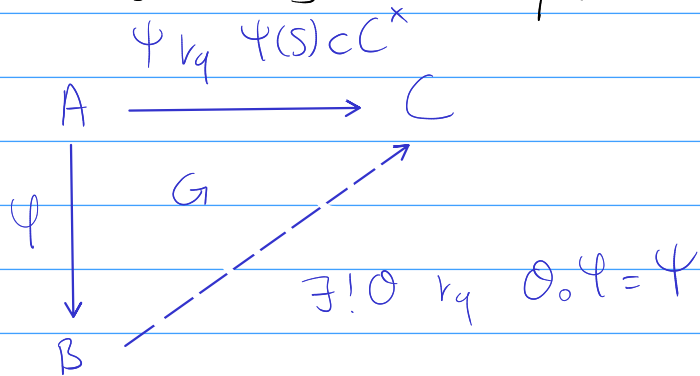 Ψ tq Ψ(S) ⊂ C^×
A C
G
φ
∃!θ tq θ∘φ = Ψ
B